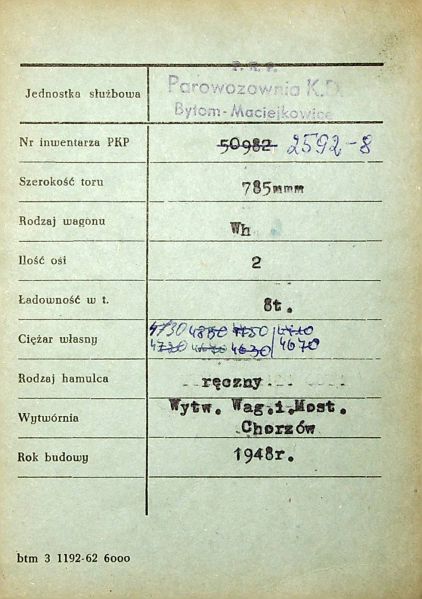 P. K. P.
Jednostka służbowa Parowozownia K.D.
Bytom-Maciejkowice
Nr inwentarza PKP 50982 2592-8
Szerokość toru 785mmm
Rodzaj wagonu Wh
Ilość osi 2
Ładowność w t. 8t.
4730 4850 4750 4710
Ciężar własny 4730 4630 4670
Rodzaj hamulca ręczny
Wytw. Wag.i.Most.
Wytwórnia Chorzów
Rok budowy 1948r.
btm 3 1192-62 6000